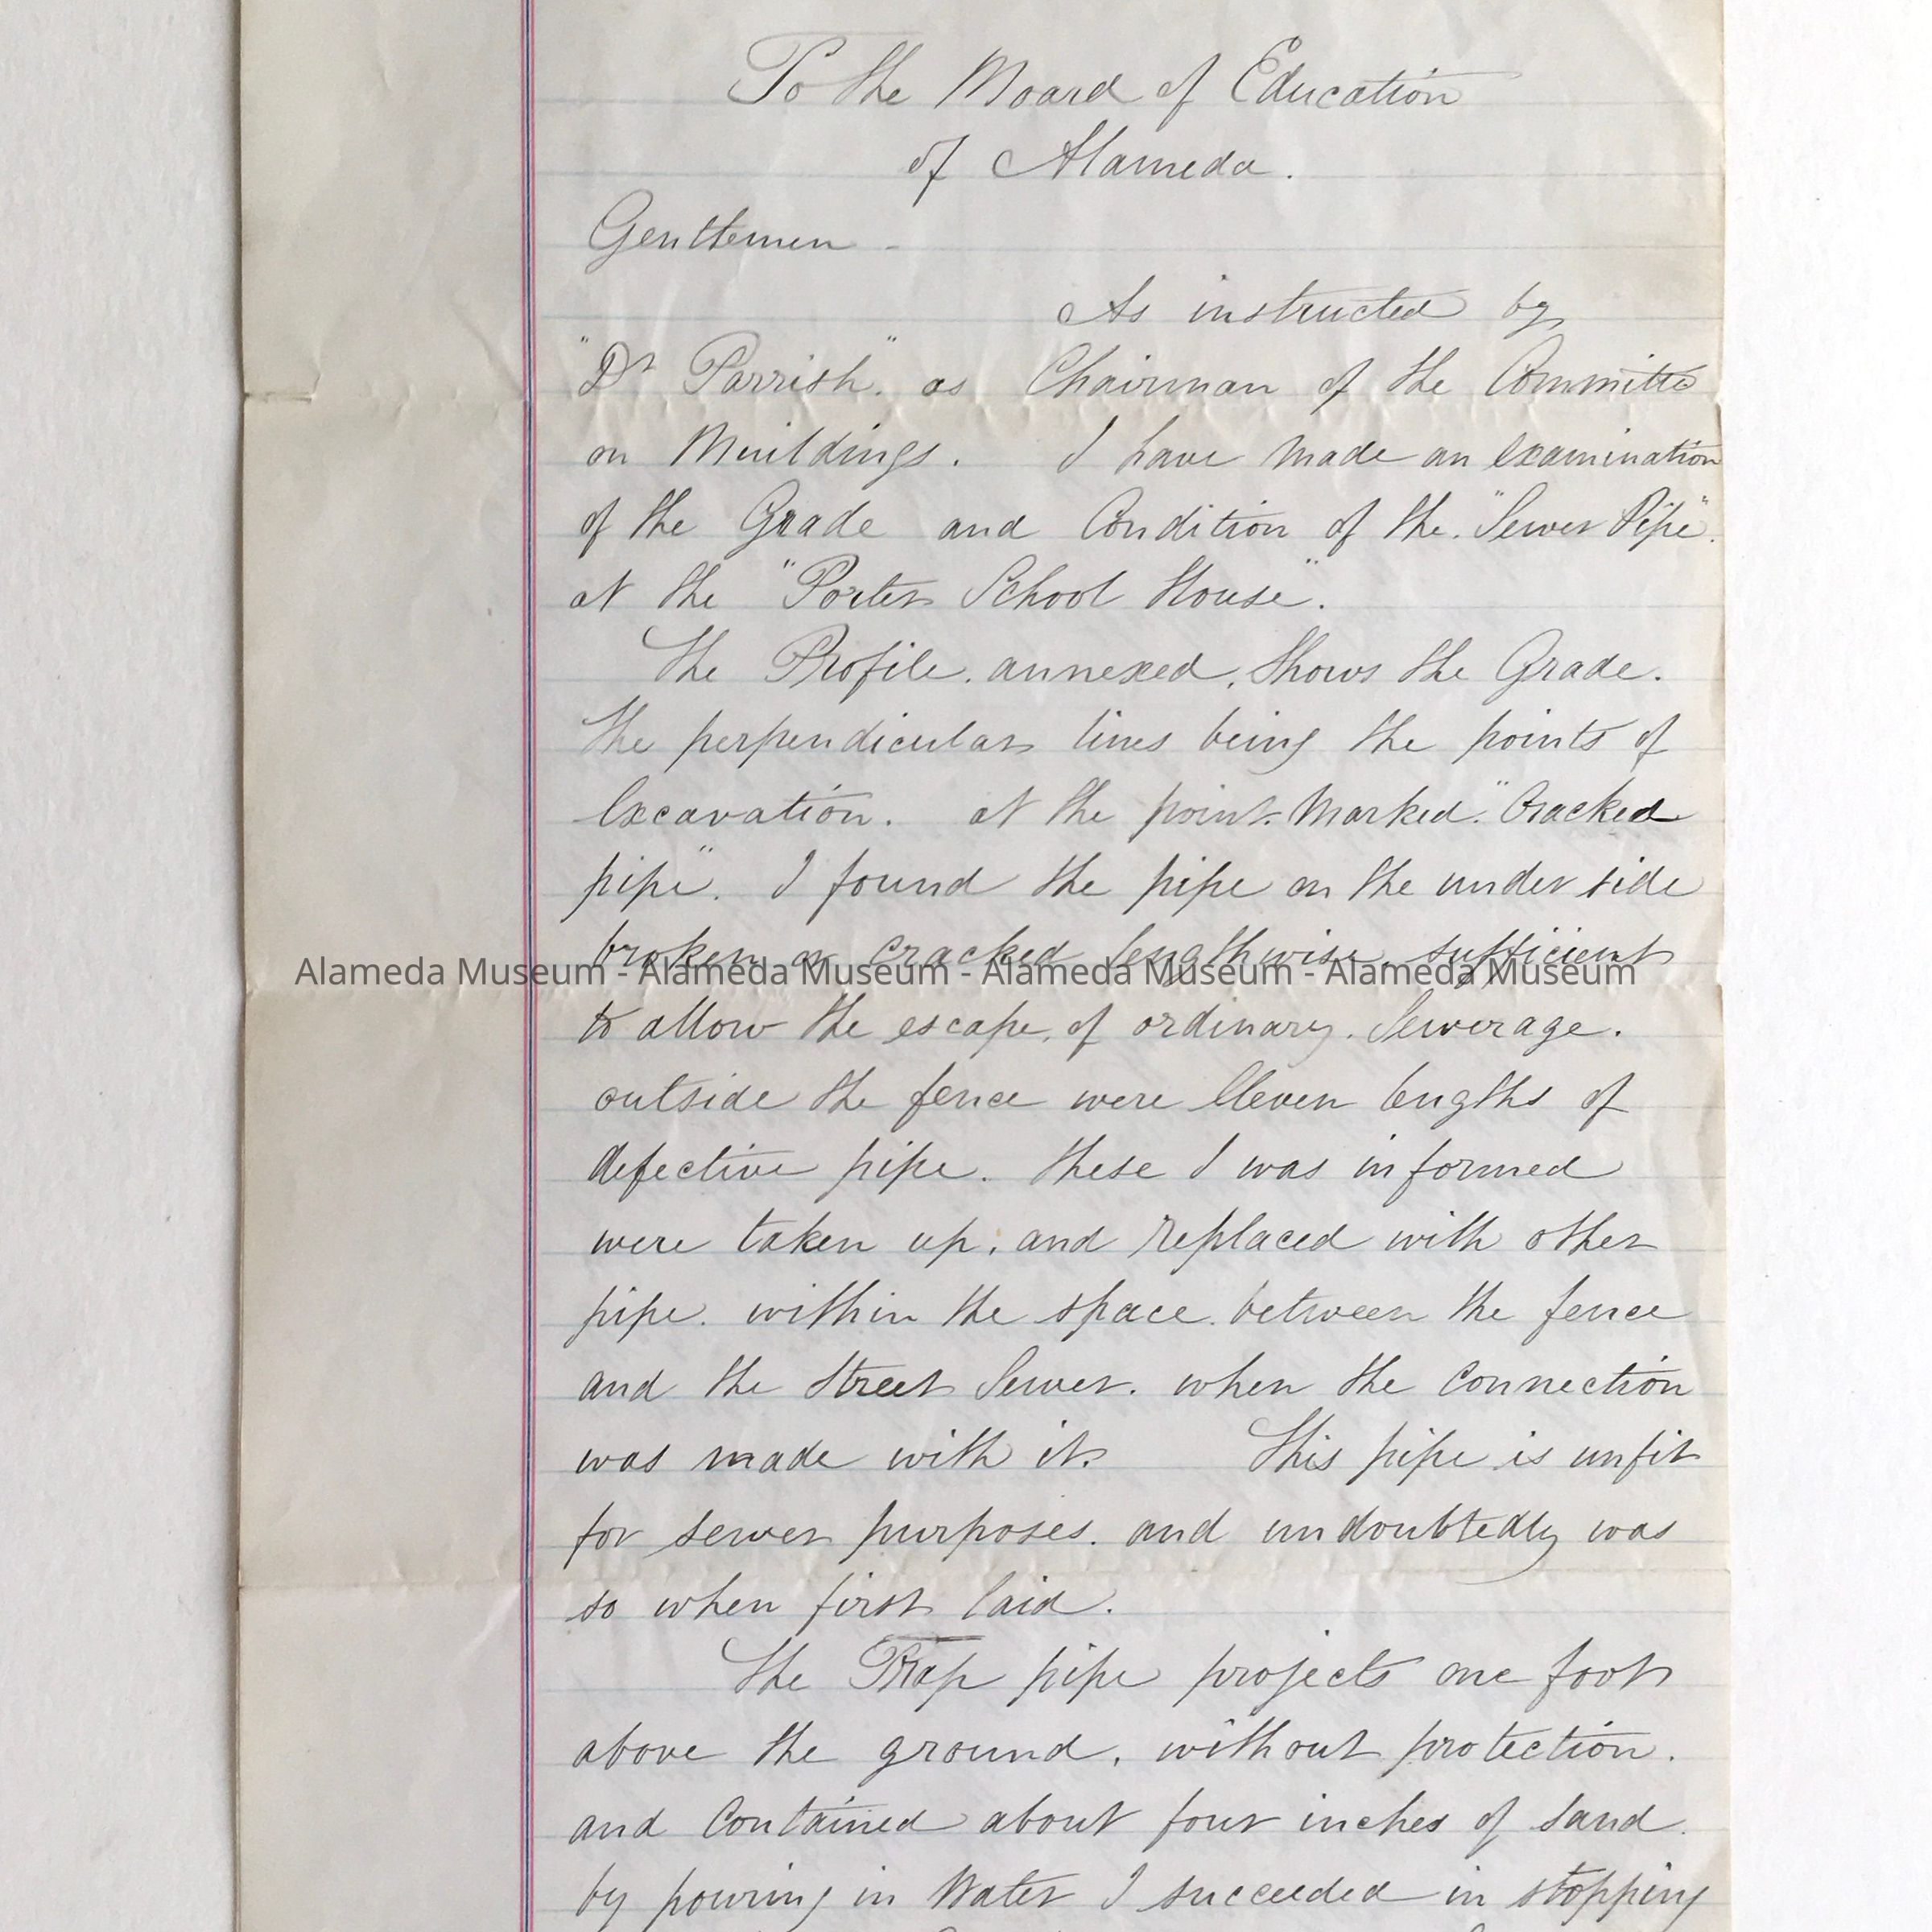 To the Board of Education
of Alameda.
Gentlemen -
As instructed by
"Dr Parrish". as Chairman of the Committee
on Buildings. I have made an examination
of the Grade and Condition of the. "Sewer Pipe".
at the "Porter School House".
The Profile. annexed, Shows the Grade.
The perpendicular lines being the points of
Excavation. at the point. Marked. "Cracked
pipe". I found the pipe on the under side
broken or cracked lengthwise. sufficient
Alameda Museum - Alameda Museum - Alameda Museum - Alameda Museum
to allow the escape. of ordinary. Sewerage.
outside the fence were Eleven lengths of
defective pipe. these I was informed
were taken up. and replaced with other
pipe. within the space. between the fence
and the Street Sewer. when the Connection
was made with it. This pipe is unfit
for sewer purposes. and undoubtedly was
so when first laid.
The Trap pipe projects one foot
above the ground, without protection.
and Contained about four inches of sand.
by pouring in Water I succeeded in stopping